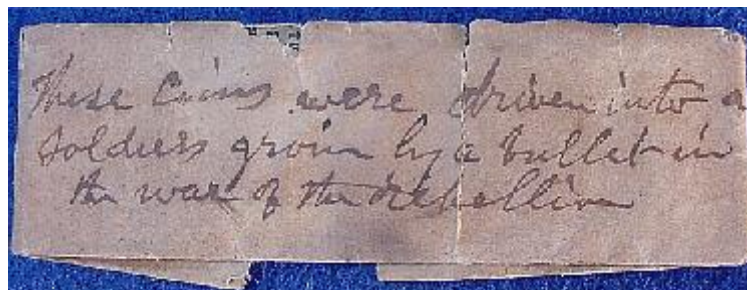 These Coins were driven into a
soldiers groin by a bullet in
the war of the rebellion